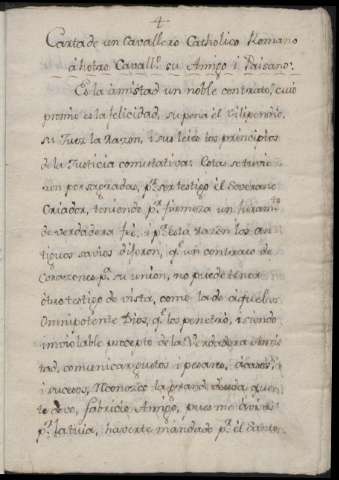 4
Carta de un Cavallero Catholico Romano
à hotro Cavall.º su Amigo i Paisano.
Es la amistad un noble contrato, cuio
premio es la felicidad, su pena el vilipendio,
su Juez la Razon, i su leies los principios
de la Justicia comutativa: Estas se tuvie
ron por sagradas, p.r ser testigo el Soverano
Criador, teniendo p.r firmeza un juram.to
de verdadera fee, i p.r esta razon los an
tiguos savios dijeron, q.e un contrato de
Corazones p.a su union, no puede tener
otro testigo de vista, como la de aquel
Omnipotente Dios, q.e los penetró, i siendo
inviolable precepto de la Verdadera Amis
tad, comunicar gustos i pesares, acasos,
i sucesos, Reconozco la grande deuda que
te devo, Fabricio Amigo, pues me avisas
p.r la tuia, haverte mandado p.r el Santo